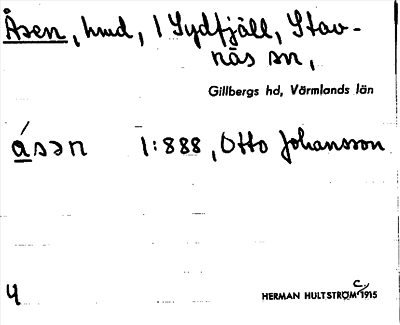 Åsen, hmd, 1 Sydfjäll, Stav-
näs sn,
Gillbergs hd, Värmlands län
ásən 1:888, Otto Johansson
4
HERMAN HULTSTRÖM C. 1915